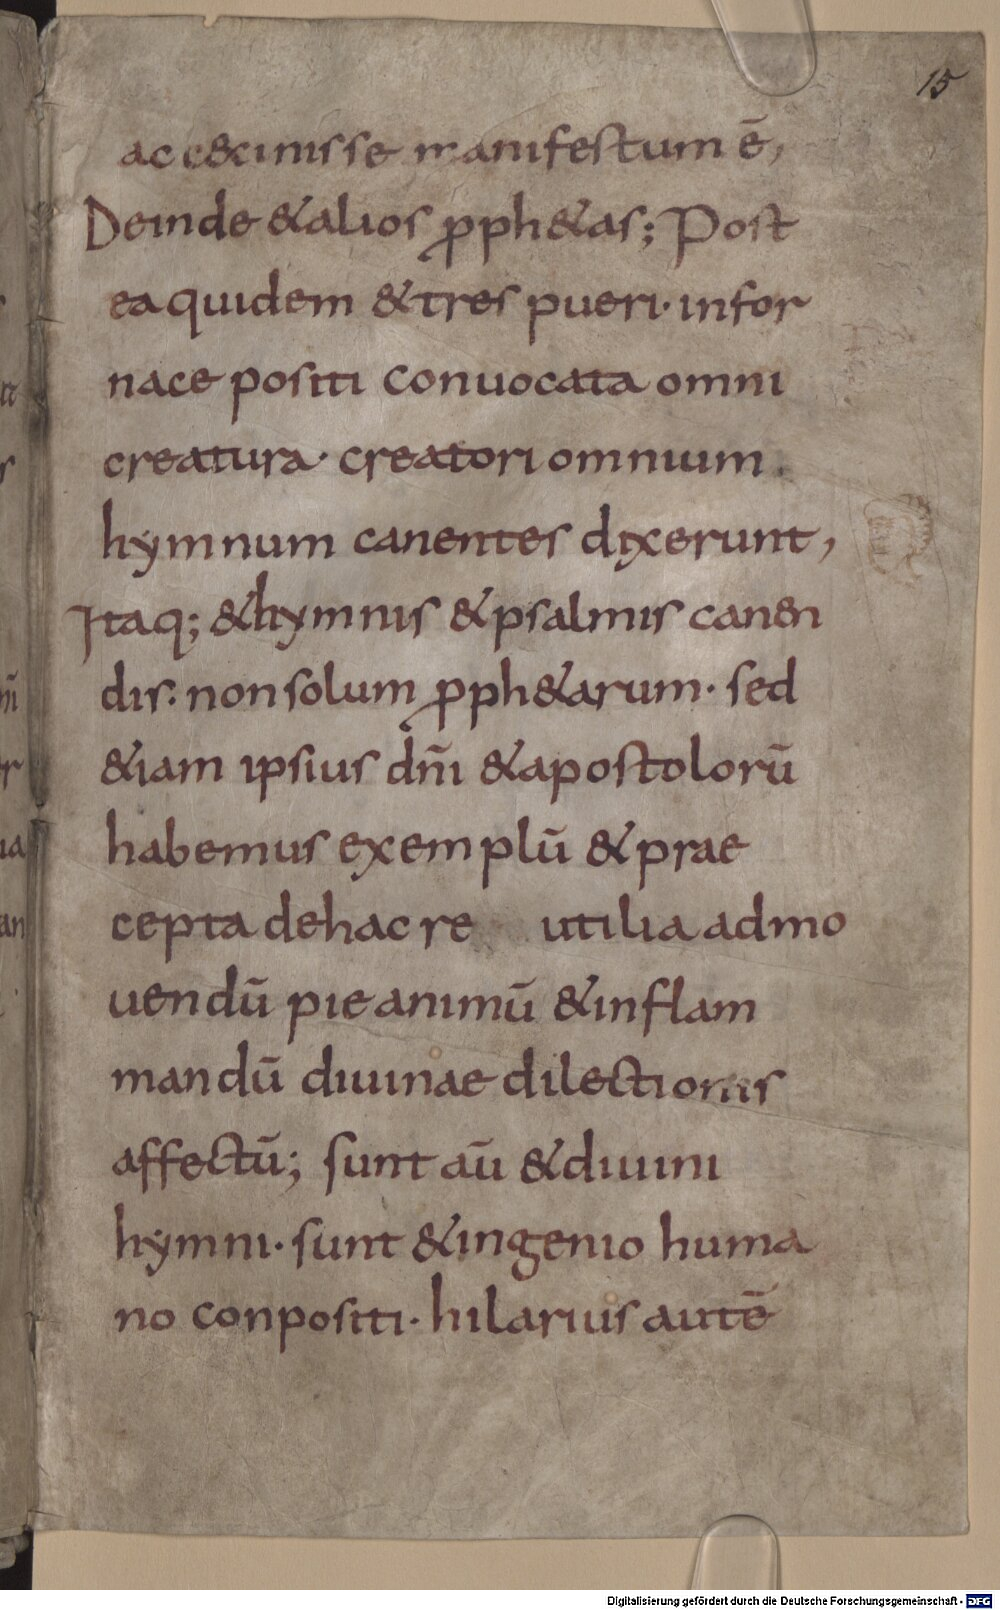 15
ac cecinisse manifestum ē,
Deinde &alios pph&as; Post
ea quidem &tres pueri· infor
nace positi convocata omni
creatura· creatori omnium
hymnum canentes dixerunt,
Itaq; &hymnis &psalmis canen
dis· non solum pph&arum· sed
&iam ipsius dñi &apostolorū
habemus exemplū &prae
cepta dehac re utilia admo
uendū pie animū &inflam
mandū diuinae dilectionis
affectū; sunt aū &diuini
hymni· sunt &ingenio huma
no conpositi· hilarius autē
Digitalisierung gefördert durch die Deutsche Forschungsgemeinschaft - DFG